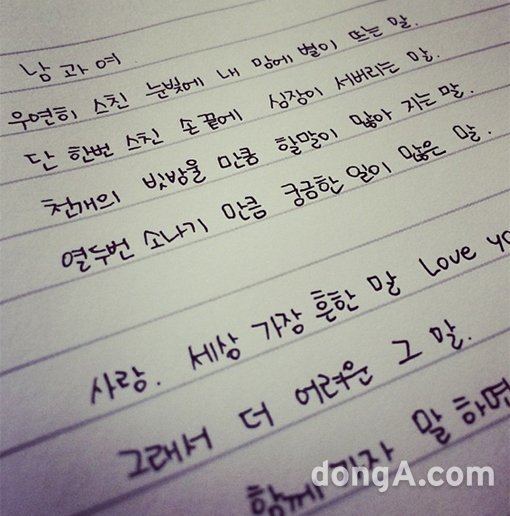 남 과 여
우연히 스친 눈빛에 내 맘에 별이 뜨는 말.
단 한번 스친 손 끝에 심장이 서버리는 말.
천개의 빗방울 만큼 할말이 많아 지는 말.
열두번 소나기 만큼 궁금한 일이 많은 말.
사랑. 세상 가장 흔한 말 Love yo
그래서 더 어려운 그 말.
함께 가자 말 하면
dongA.com